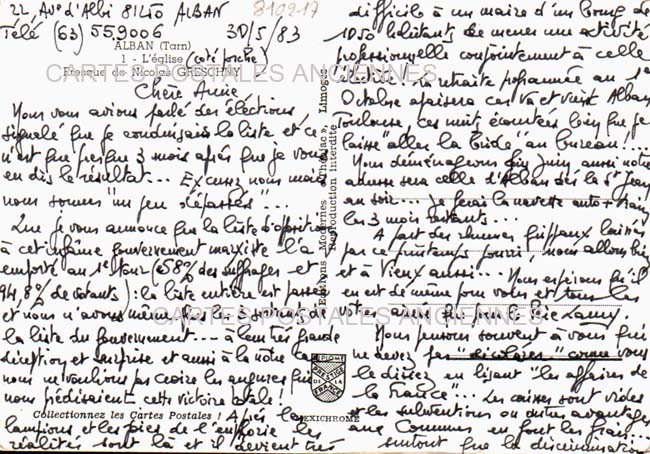 22 Ave d'Albi 81250 ALBAN
8102-17
Télé (63) 559006 30/5/83
ALBAN (Tarn)
1 - L'église (coté porche)
Fresque de Nicolas GRESCHNY
CARTES POSTALES ANCIENNES
Chère Amie,
Nous vous avions parlé des élections,
signalé que je conduisais la liste et ce
n'est que presque 3 mois après que je vous
en dis le résultat... Excusez nous mais
nous sommes "un peu dépassés"...
Que je vous annonce que la liste d'opposit
à cet infâme gouvernement marxiste l'a
emporté au 1er tour (58% des suffrages et
94,8% de votants) : la liste entière est passée
et nous n'avons même pas le sortant de
la liste du gouvernement... à leur très grande
déception et surprise et aussi à la notre car
nous ne voulions pas croire les augures qui
nous prédisaient cette victoire totale !
Collectionnez les Cartes Postales ! Après les
lampions et les pies de l'euphorie les
réalités sont là et il devient très
Editions Modernes « Théojac », Limoges
Reproduction interdite
MEXICHROME
difficile à un maire d'un bourg de
1050 habitants de mener une activité
professionnelle conjointement à celle
d'élu... La retraite programmée au 1er
Octobre apaisera ces va et vient Alban
Toulouse, ces nuits écourtées bien que je
laisse "aller la bride" au bureau !...
Nous déménageons fin juin aussi notre
adresse sera celle d'Alban dès la St Jean
au soir... je ferai la navette auto + train
les 3 mois restants...
A part des rhumes grippaux laissés
par ce printemps pourri, nous allons bien
et à Vieux aussi... Nous espérons qu'il
en est de même pour vous et tous les
votres ainsi que pour le Père Lamy.
CARTES POSTALES ANCIENNES
Nous pensons souvent à vous qui
ne devez pas "sicolaier" comme vous
le disiez en lisant "les affaires de
la France"... Les caisses sont vides
et les subventions ou autres avantages
aux Communes en font les frais...
surtout que la discrimination